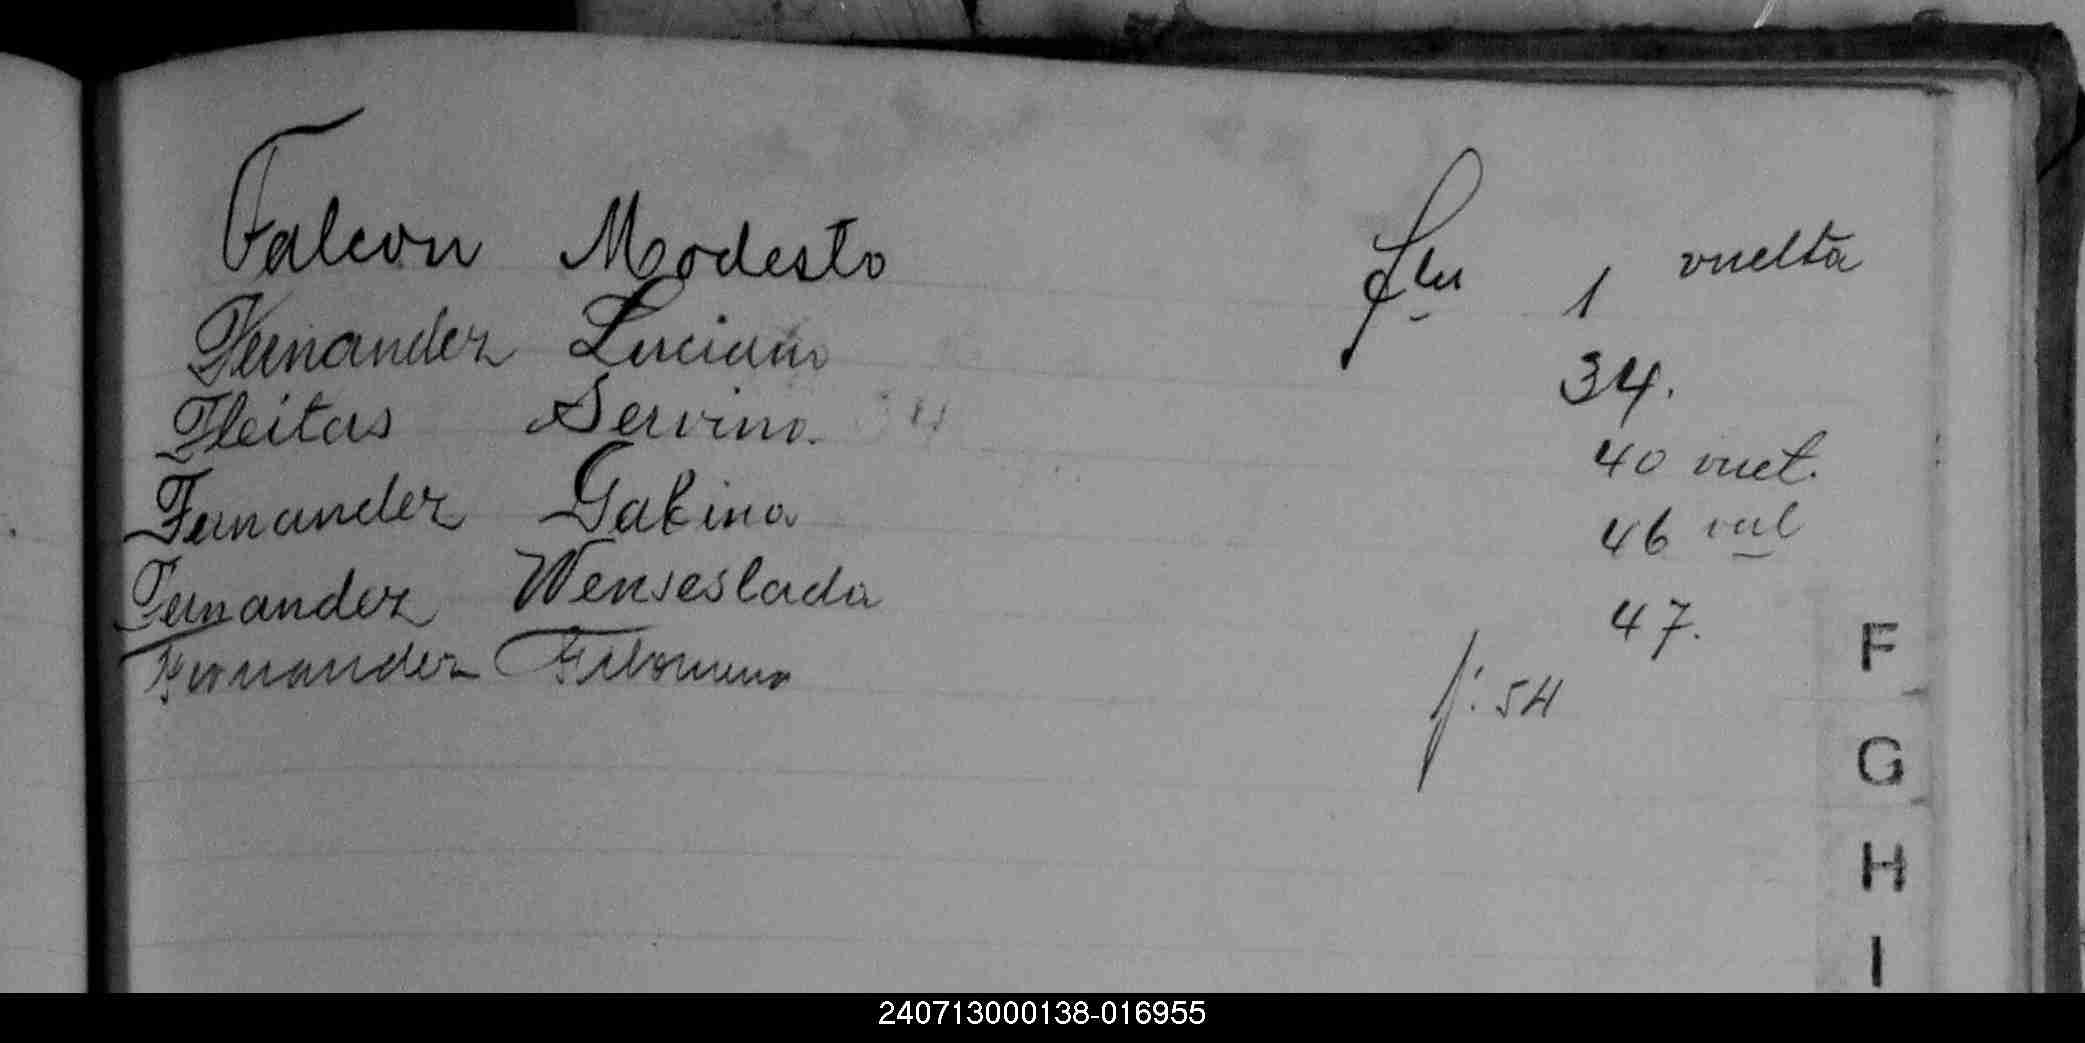 Falcon Modesto flio 1 vuelta
Fernandez Luciano 34.
Fleitas Servino. 40 vuet.
Fernandez Gabina 46 vul
Fernandez Wenseslada 47.
Fernandez Filomena f: 54
F
G
H
I
240713000138-016955